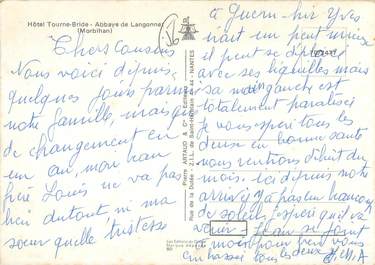 Hôtel Tourne-Bride - Abbaye de Langonnet
(Morbihan)
Chers cousins
Nous voici depuis
quelques jours parmi
notre famille, mais que
de changement en
un an, mon beau
frère Louis ne va pas
bien du tout, ni ma
sœur quelle tristesse
Pierre ARTAUD & Cie Editeurs
Rue de la Dutée - Z.I.L. de Saint-Herblain - 44 - NANTES
à Guern- Yves
va un peu mieux
il peut se
avec ses béquilles mais
sa main gauche est
totalement paralisée
Je vous espère tous les
deux en bonne santé
nous rentrons début du
mois. ici depuis notre
arrivée y a pas eu beaucoup
de soleil, j'espère qu'il va
venir. Jean se joint
à moi pour vous
embrasser tous les deux